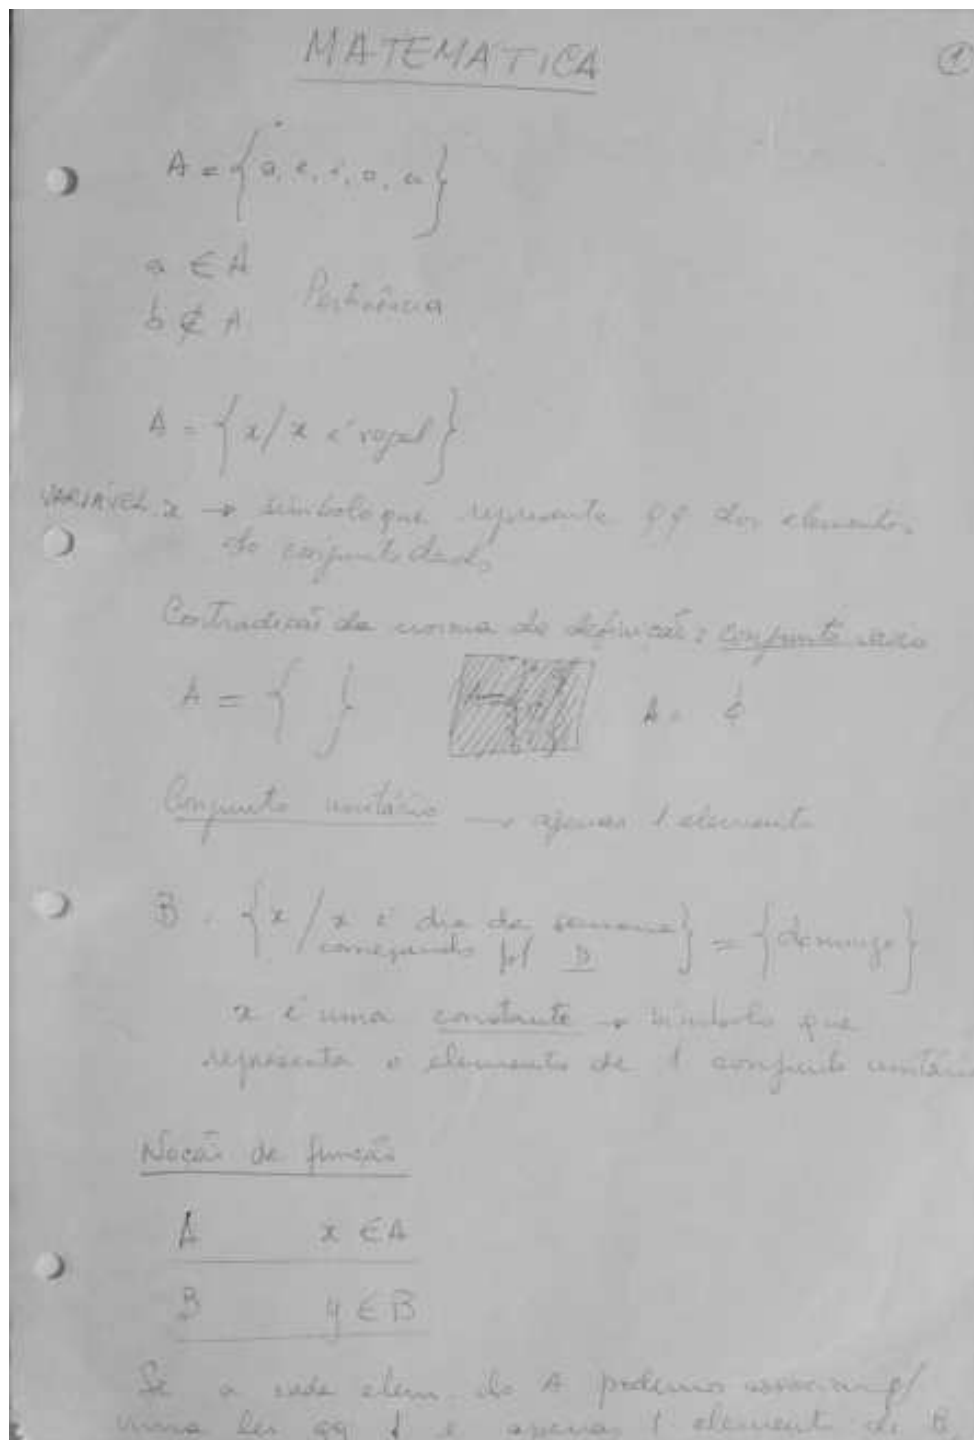 MATEMATICA
1
A = { a, e, i, o, u }
a ∈ A
Pertinência
b ∉ A
A = { x / x é vogal }
VARIÁVEL x → símbolo que represente qq dos elementos
do conjunto dado
Contradição da norma de definição: conjunto vazio
A = { } A = ϕ
Conjunto unitário → apenas 1 elemento
B = { x / x é dia da semana
começando por D } = { domingo }
x é uma constante → símbolo que
representa o elemento de 1 conjunto unitário
Noção de função
A x ∈ A
B y ∈ B
Se a cada elem. de A podemos associar p/
uma lei qq 1 e apenas 1 element de B